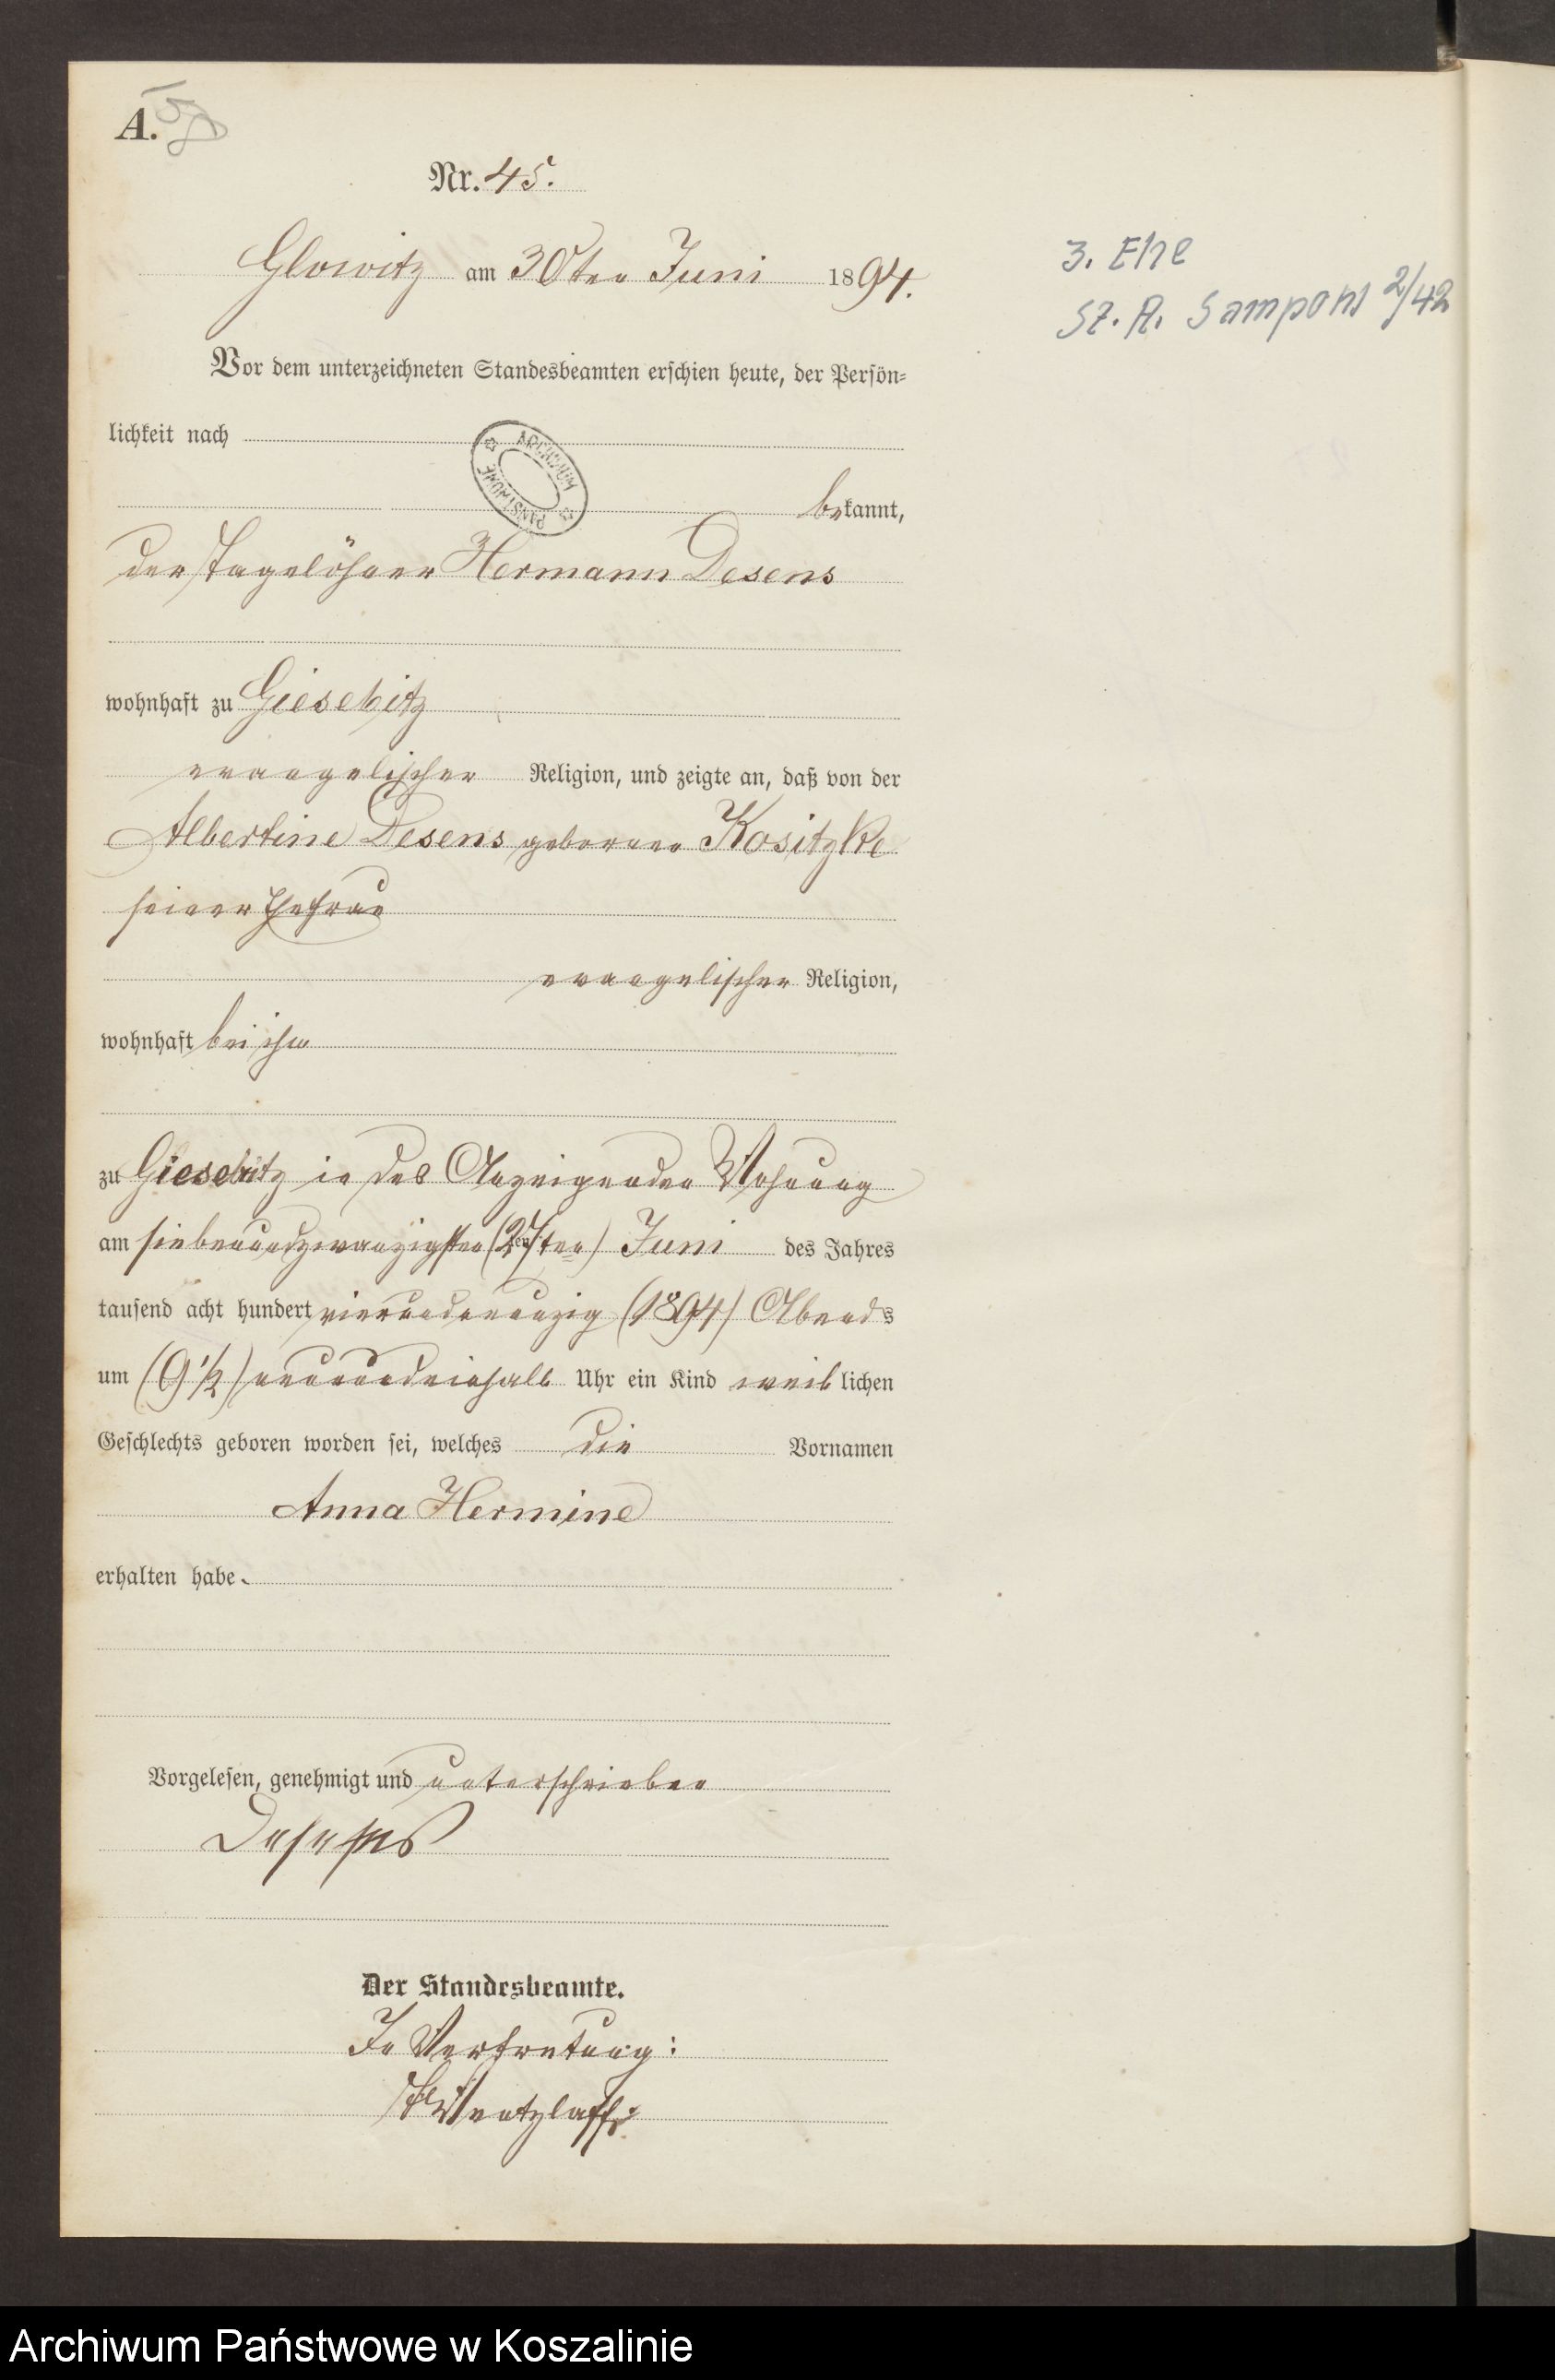 A.
Nr. 45.
Glowitz am 30ten Juni 1894.
3. Ehe
St. A. Sampohl 2/42
Vor dem unterzeichneten Standesbeamten erschien heute, der Persön-
lichkeit nach
ARCHIWUM PAŃSTWOWE
bekannt,
der Tagelöhner Hermann Desens
wohnhaft zu Giesebitz
evangelischer Religion, und zeigte an, daß von der
Albertine Desens geborene Kositzke
seiner Ehefrau
evangelischer Religion,
wohnhaft bei ihm
zu Giesebitz in des Anzeigenden Wohnung
am siebenundzwanzigsten (27ten) Juni des Jahres
tausend acht hundert vierundneunzig (1894) Abends
um (9 1/2) neunundeinhalb Uhr ein Kind weiblichen
Geschlechts geboren worden sei, welches die Vornamen
Anna Hermine
erhalten habe.
Vorgelesen, genehmigt und unterschrieben
Desens
Der Standesbeamte.
In Vertretung:
Wentzlaff.
Archiwum Państwowe w Koszalinie